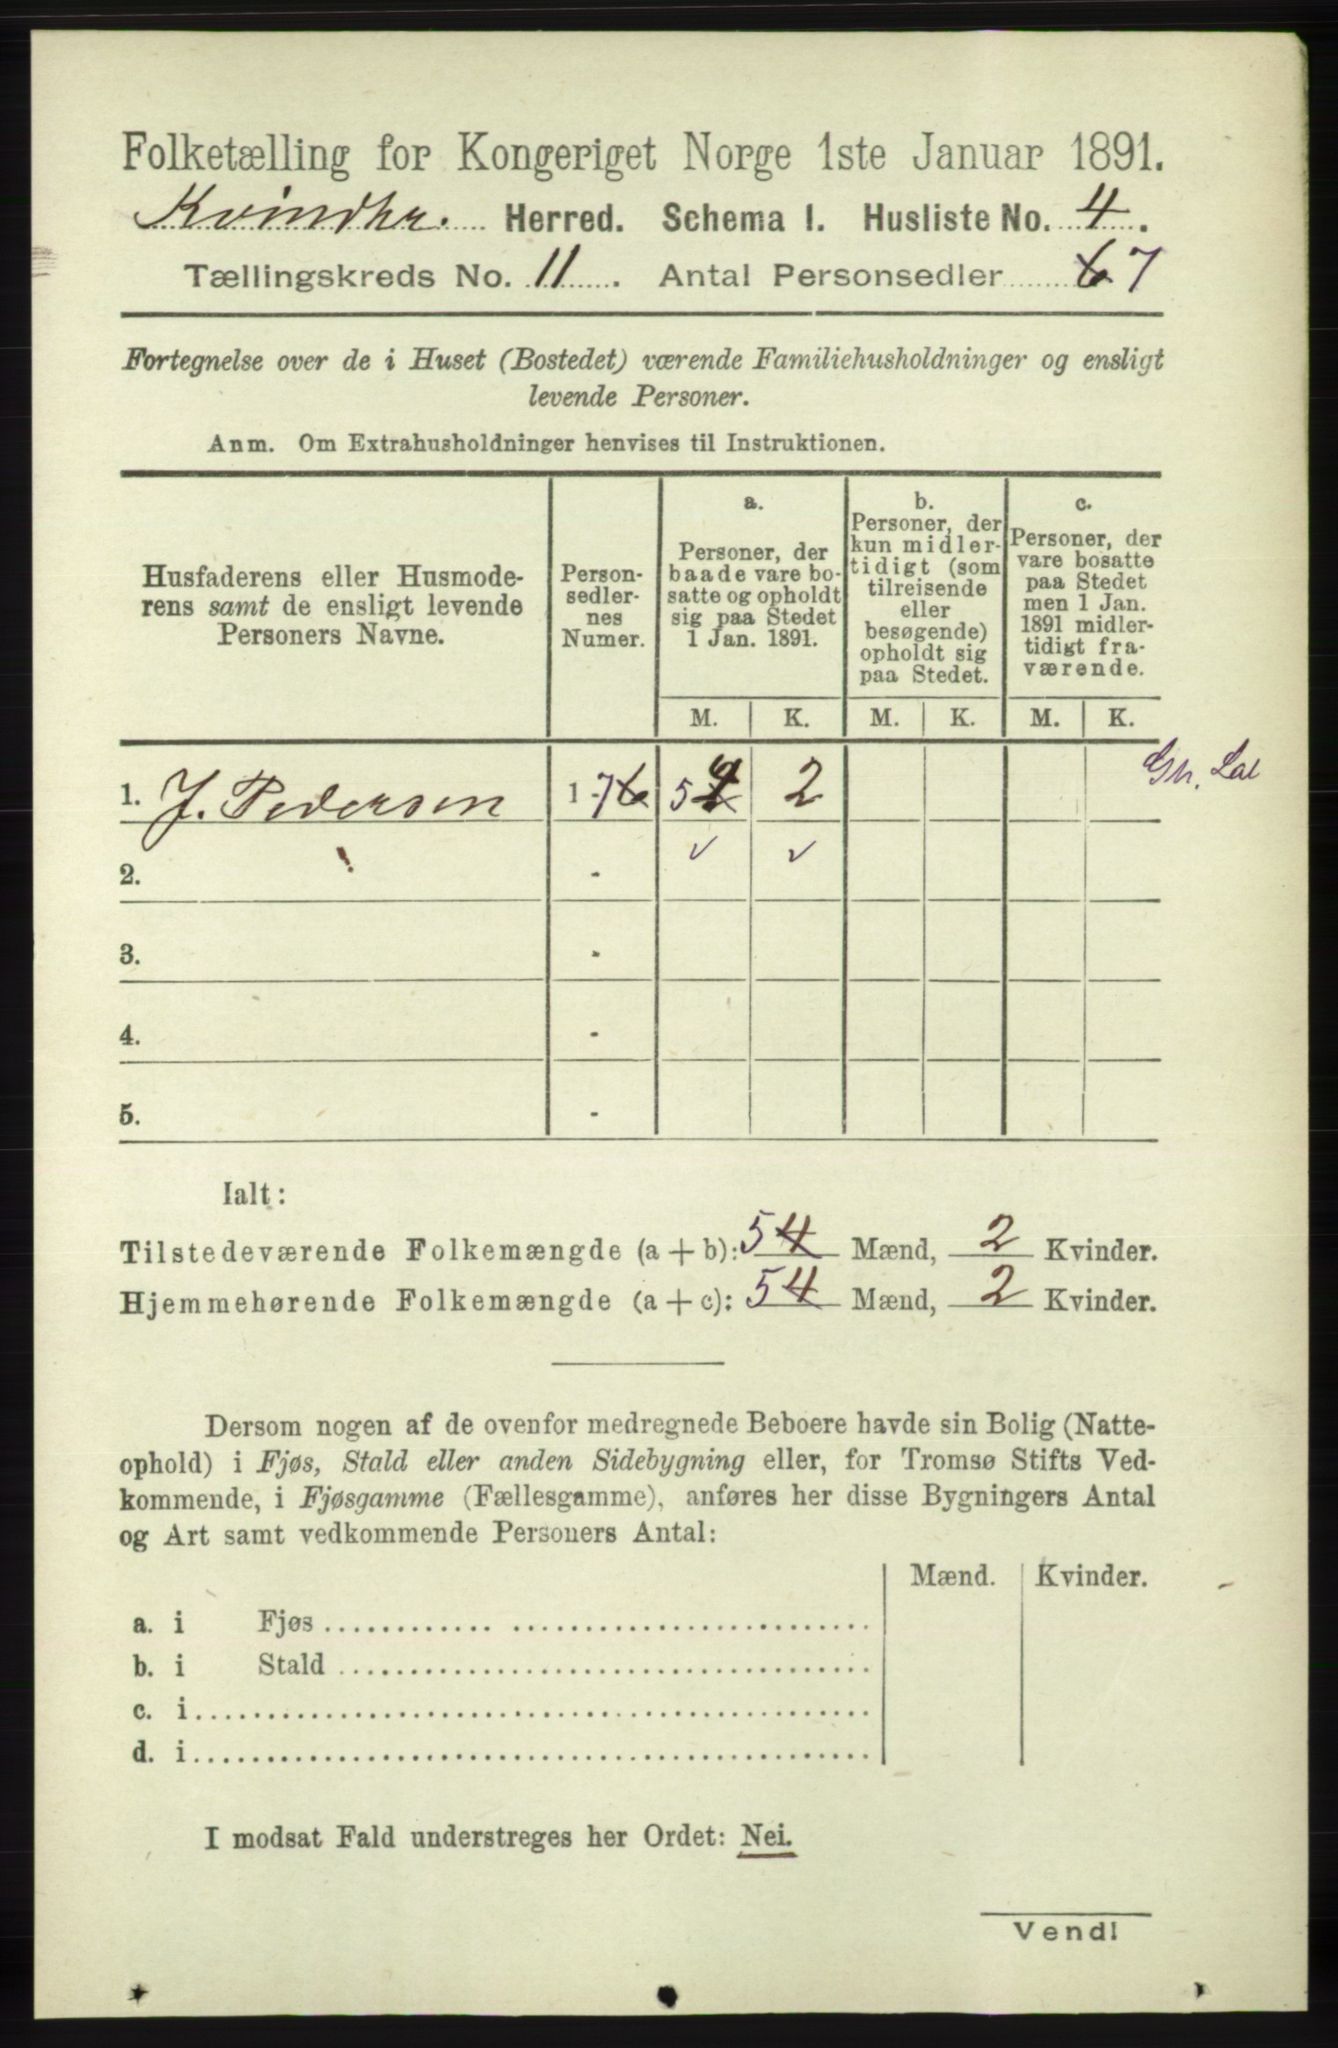 Folketælling for Kongeriget Norge 1ste Januar 1891.
Kvindhr. Herred. Schema I. Husliste No. 4.
Tællingskreds No. 11. Antal Personsedler 6 7
Fortegnelse over de i Huset (Bostedet) værende Familiehusholdninger og ensligt
levende Personer.
Anm. Om Extrahusholdninger henvises til Instruktionen.
Husfaderens eller Husmode-
rens samt de ensligt levende
Personers Navne.
Person-
sedler-
nes
Numer.
a.
Personer, der
baade vare bo-
satte og opholdt
sig paa Stedet
1 Jan. 1891.
b.
Personer, der
kun midler-
tidigt (som
tilreisende
eller
besøgende)
opholdt sig
paa Stedet.
c.
Personer, der
vare bosatte
paa Stedet
men 1 Jan.
1891 midler-
tidigt fra-
værende.
M. K. M. K. M. K.
1. J. Pedersen 1 - 7 6 5 4 2
2. - ✓ ✓
3. -
4. -
5. -
Ialt:
Tilstedeværende Folkemængde (a + b): 5 4 Mænd, 2 Kvinder.
Hjemmehørende Folkemængde (a + c): 5 4 Mænd, 2 Kvinder.
Dersom nogen af de ovenfor medregnede Beboere havde sin Bolig (Natte-
ophold) i Fjøs, Stald eller anden Sidebygning eller, for Tromsø Stifts Ved-
kommende, i Fjøsgamme (Fællesgamme), anføres her disse Bygningers Antal
og Art samt vedkommende Personers Antal:
Mænd. Kvinder.
a. i Fjøs
b. i Stald
c. i
d. i
I modsat Fald understreges her Ordet: Nei.
Vend!